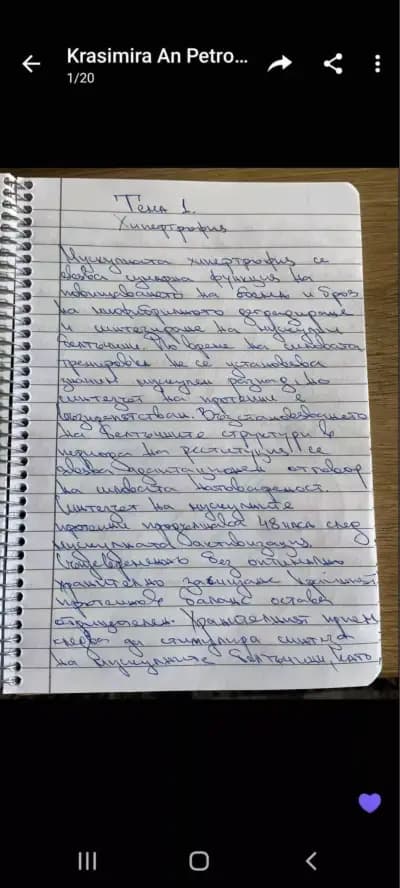 Krasimira An Petro...
1/20
Тема 1.
Хипертрофия
Мускулната хипертрофия се
явява функция на
на белтъчни и
на деградиране
и синтезиране на мускулни
белтъчини. По време на силовата
тренировка не се установява
мускулен разпад, но
синтезът на протеини е
възпрепятстван. Възстановяването
на белтъчните структури в
периода на реституция се
явява адаптационен отговор
на силовата натовареност.
Синтезът на мускулните
протеини продължава 48 часа след
мускулната активизация.
Същевременно без оптимално
хранително
протеинов баланс остава
отрицателен. Хранителният прием
следва да стимулира синтеза
на мускулните белтъчини, като